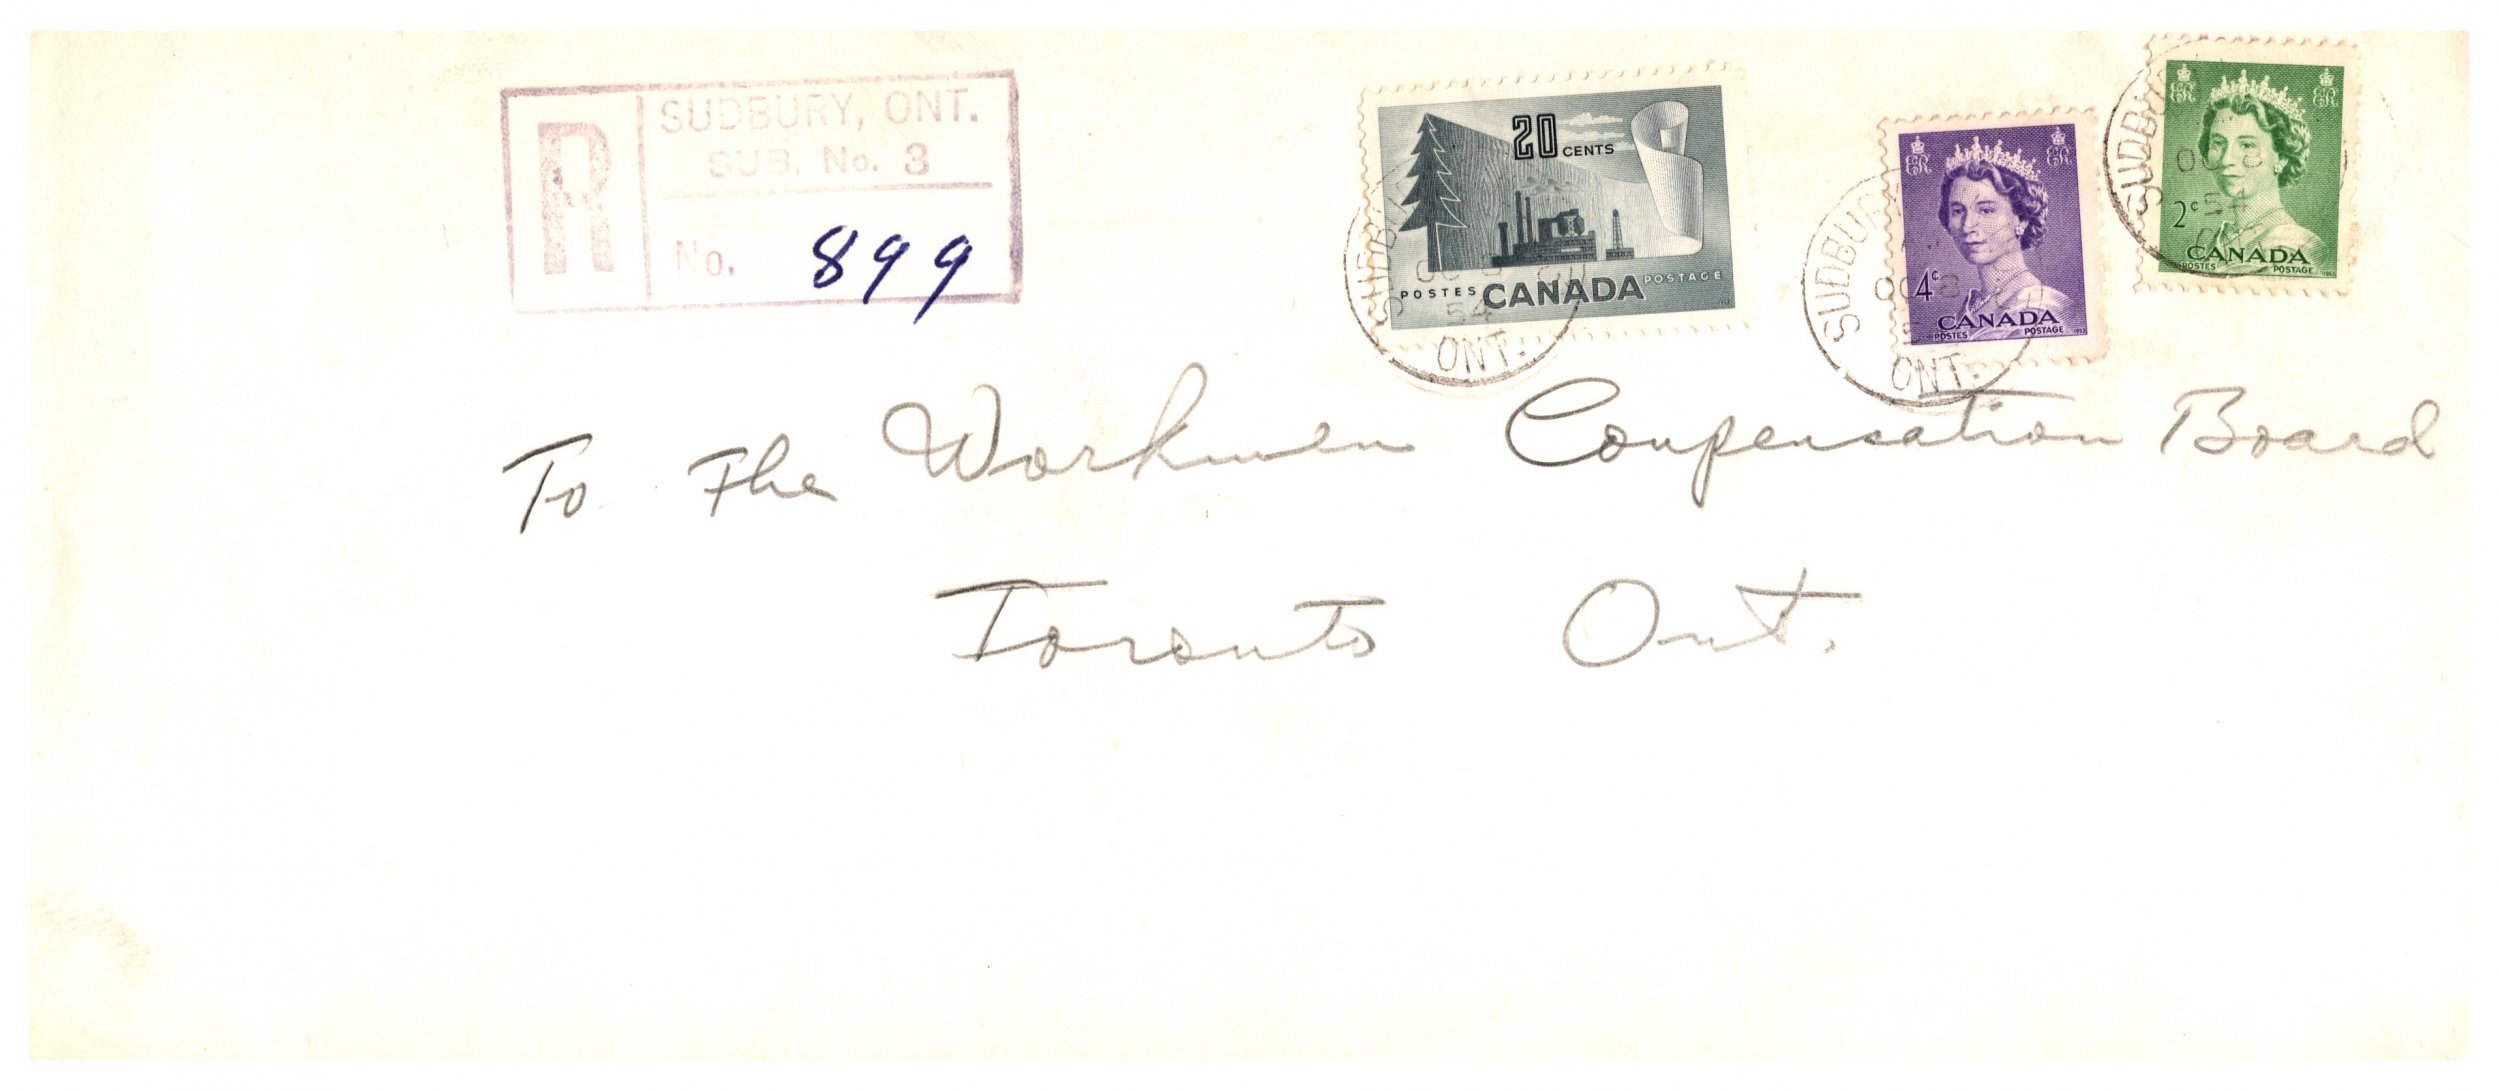 SUDBURY, ONT.
SUB. No. 3
R
No. 899
20 CENTS
POSTES CANADA POSTAGE
SUDBURY
OC 8
54
ONT.
ER ER
4c
CANADA
POSTES POSTAGE 1953
SUDBURY
OC 8
ONT.
ER ER
2c
CANADA
POSTES POSTAGE 1953
SUDBURY
OC 8
54
To The Workmen Compensation Board
Toronto Ont.